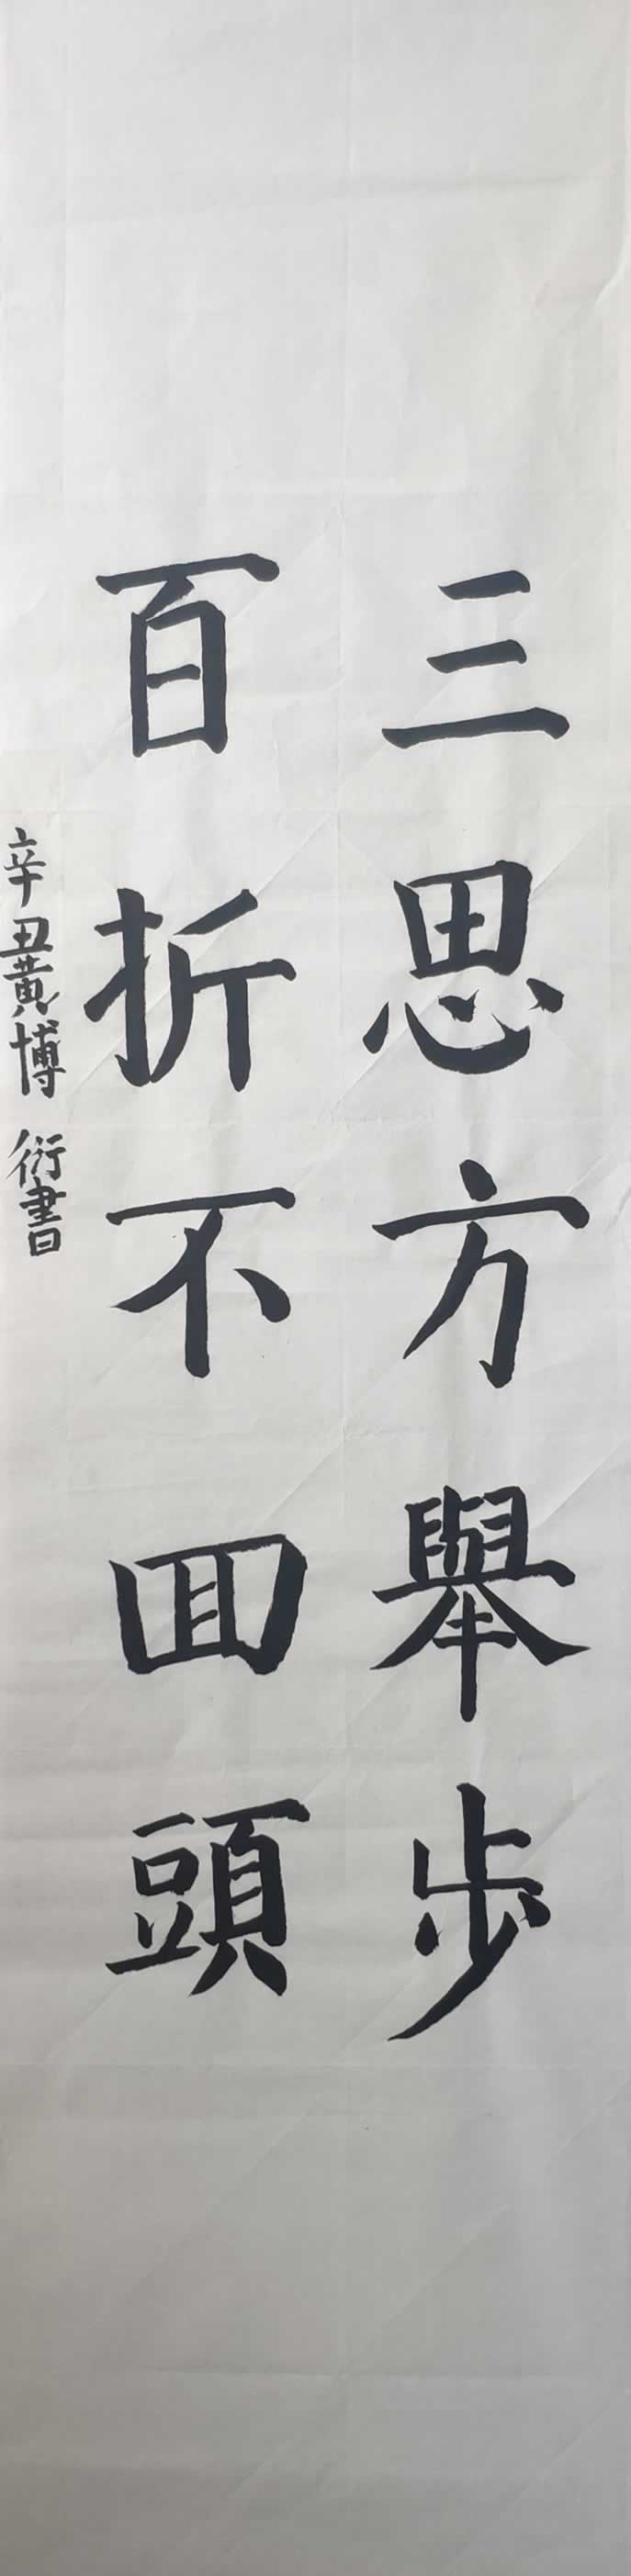 三思方舉步
百折不回頭
辛丑黃博衍書